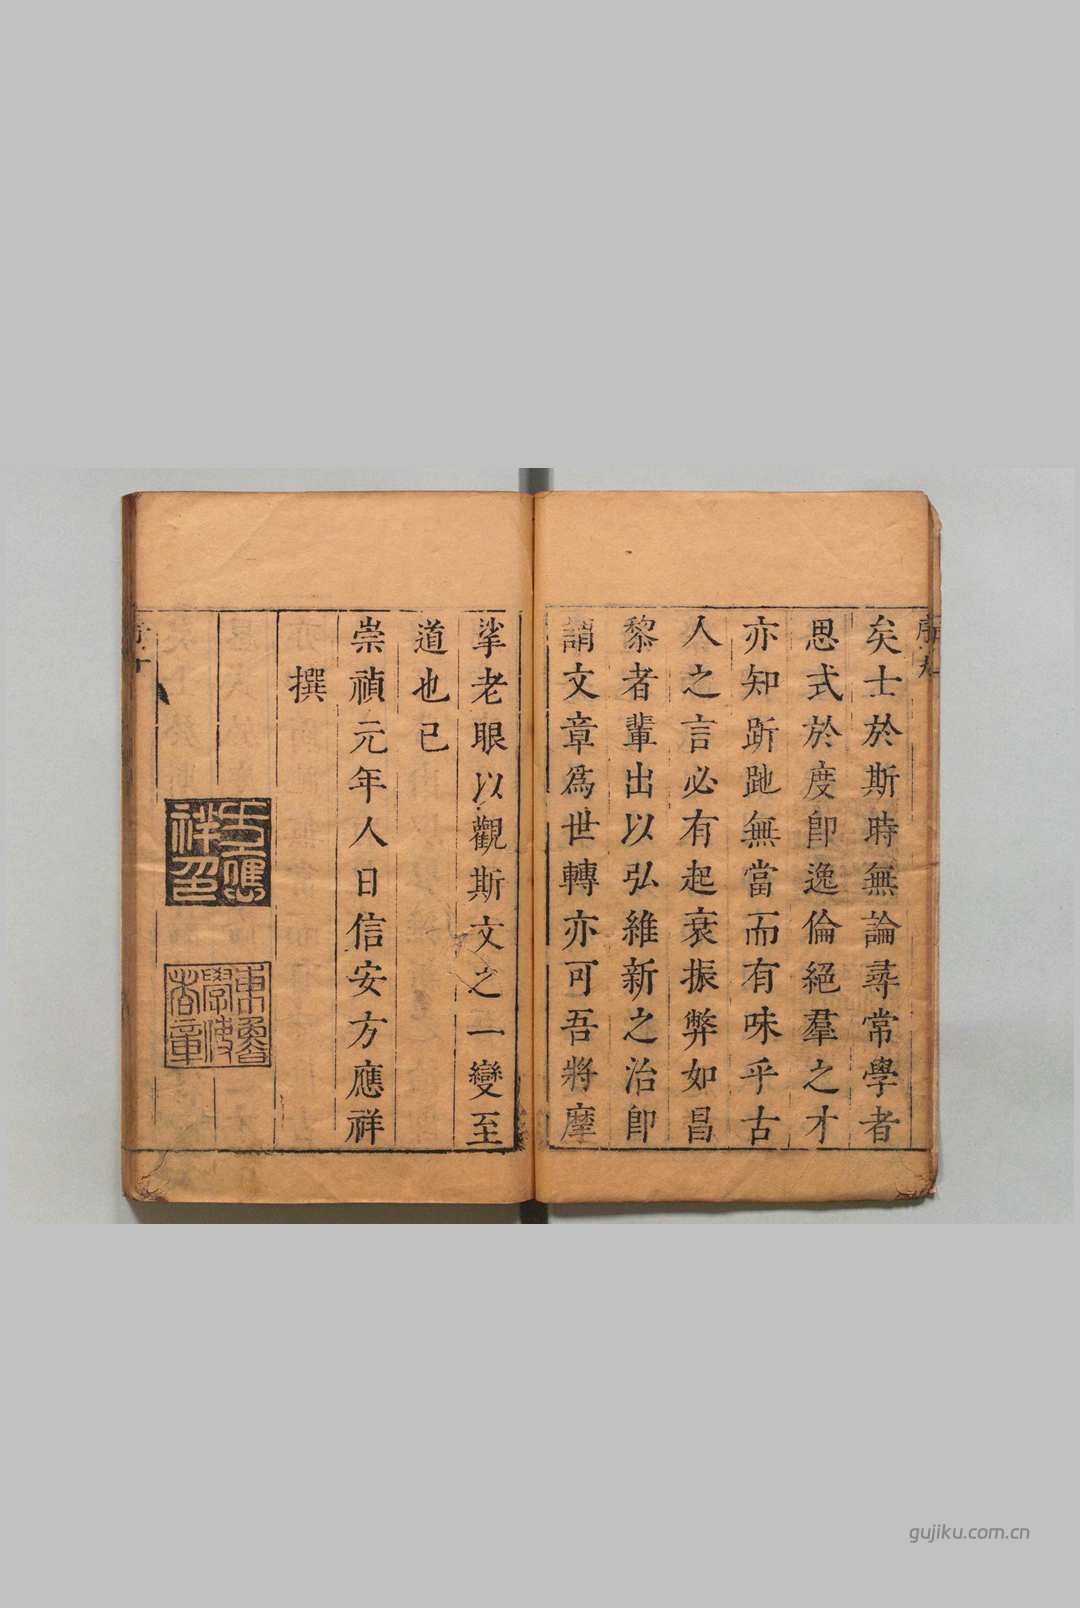 矣士於斯時無論尋常學者
思式於度卽逸倫絕羣之才
亦知跅跎無當而有味乎古
人之言必有起衰振弊如昌
黎者輩出以弘維新之治卽
謂文章爲世轉亦可吾將摩
挲老眼以觀斯文之一變至
道也已
崇禎元年人日信安方應祥
撰
方應祥印
gujiku.com.cn